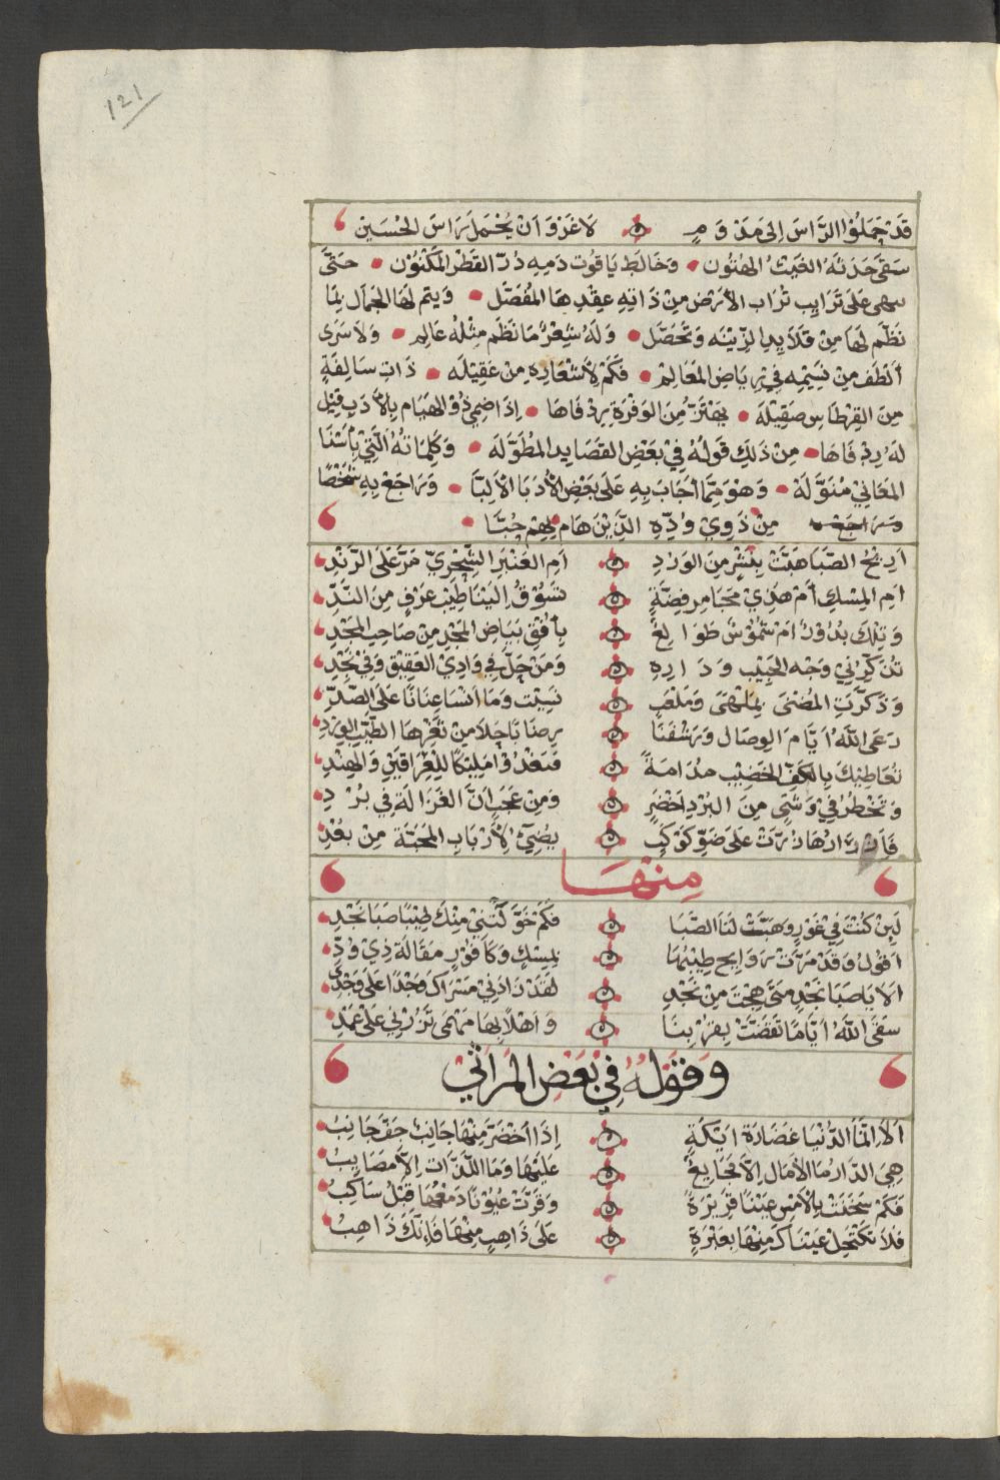 121
قَدْ حَمَلُوْا الرَّاسَ اِلىَ مَدْ وَ مٍ ۞ لَا غَرْوَ اَنْ يُحْمَلَ رَاسَ الْحُسَيْن
سَقَى جَدَثَهُ الغَيثُ الهَتُون • وَخَالَطَ يَاقُوت دَمِهِ دُرّ القَطْرِ المَكْنُوْن • حَتىَّ
عَلىَ تَرَايِبِ تُرَاب الأرْضِ مِنْ ذَاتِهِ عِقْدِهَا المُفَصَّل • وَيَتم لَهَا الجَمَال بِمَا
نَظَّم لَهَا مِنْ قَلَايِدِ الزِيْنَه وَتَحَصَّل • وَلَهُ شِعْرٌ مَا نَظَم مِثْلَهُ عَالِم • وَلا سَرَى
اَلْطَف مِنْ نَسِيْمِه فِيْ رِيَاضِ المَعَالِم • فَكَمْ لأَشْعَارِهِ مِنْ عَقِيْلَه • ذَاتِ سَالِفَةٍ
مِنَ القِرْطَاسِ صَقِيْلَه • يَهْتَزُّ مِنَ الوَفْرَةِ رِدْفَاهَا • اِذَا ضِمِيْ ذُوْ الهيَام بِالأَدَبِ قِيْل
لَهُ رِدْ فَاهَا • مِنْ ذَلِكَ قَوْلُهُ فِيْ بَعْضِ القَصَايِد المُطَوَّلَه • وَكَلِمَاتهُ الَّتِيْ بِأَسْنَا
المَعَانِيْ مُنَوَّلَهْ • وَهْوَ مِمَّا أَجَابَ بِهِ عَلَى بَعْضِ الأُدَبَا الأَلِبَّا • وَرَاجَعْ بِهِ شَخْصًا
مِنْ ذَوِيْ وُدِّهِ الَّذِيْنَ هَام بِهِمْ حُبَّا •
اَرِيْحُ الصَّبَا هَبَّتْ بِنَشْرٍ مِنَ الوَرْدِ ۞ اَمِ العَنْبَرِ الشِّحْرِيّ مَرَّ عَلَى الرَّنْدِ
اَمِ المِسْكِ أَمْ هَذِيْ مَجَامِر فِضَّةٍ ۞ تَسُوْقُ اِلَيْنَا طِيْبَ عَرْفٍ مِنَ النَّدّ
وَتِلْكَ بُدُوْرٌ اَمْ شُمُوْسٌ طَوَالِعٌ ۞ بِأُفْقِ بَيَاضِ المَجْدِ مِنْ صَاحِبِ المَجْدِ
تُذَكِّرُنِيْ وَجْه الحَبِيْبِ وَدَارِهِ ۞ وَمَنْ حَلَّ فِي وَادِيْ العَقِيْقِ وَفِيْ نَجْدِ
وَذَكَّرَتِ المُضْنَى بِمَلْهَى وَمَلْعَبٍ ۞ نَسِيْت وَمَا اَنْسَا عِنَانًا عَلىَ الصَّدِّ
رَعَى اللَّهُ اَيَّامَ الوِصَال وَرَشْفَنَا ۞ مِنْ ثَغْرِهَا الطَّيِّبِ الوِرْدِ
تُعَاطِيْكَ بِالكَفِّ الخَضِيْبِ مُدَامَةً ۞ فَتَغْدُوْ امَلِيْكًا لِلْعِرَاقَيْنِ وَالهِنْدِ
وَتَخْطُرُ فِيْ وَشْيٍ مِنَ البُرْدِ اَخْضَرٍ ۞ وَمِنْ عَجَبٍ اَنَّ الغَزَالَةَ فِي بُرْدِ
دَارَهَا دُرَّتْ عَلَى ضَوّ كَوْكَبٍ ۞ يُضِيءُ لأَرْبَابِ المَحَبَّةِ مِنْ بُعْدِ
مِنْهَا
لَئِنْ كُنْتَ فِيْ غَوْرٍ وَهَبَّتْ لَنَا الصَّبَا ۞ فَكَمْ خَوَّلَتْنِيْ مِنْكَ طِيْبًا صَبَا نَجْدِ
اَقُوْل وَقَدْ مَرَّتْ رَوَايِح طِيْبِهَا ۞ بِمِسْكٍ وَكَافُوْرٍ مَقَالَةَ ذِيْ وُدِّ
اَلَا يَا صَبَا نَجْدٍ مَتَى هِجْتَ مِنْ نَجْدِ ۞ لَقَدْ زَادَنِيْ مَسْرَاكَ وَجْدًا عَلَى وَجْدِ
سَقَى اللَّهُ اَيَّامًا تَقَضَّتْ بِقُرْبِنَا ۞ وَاَهْلًا بِهَا مَهْمَى تَزُرْنِيْ عَلَى عَمْدِ
وَقَوْلهُ فِيْ بَعْضِ المَرَاثِيْ
اَلاَ اِنَّمَا الدُّنْيَا غَضَارَة اَيْكَةٍ ۞ اِذَا اَخْضَرَّ مِنْهَا جَانِبٌ جَفَّ جَانِبُ
هِيَ الدَّار مَا الأَمَال اِلاَّ فَجَايِعٌ ۞ عَلَيْهَا وَمَا اللَّذَّات اِلاَّ مَصَايِبُ
فَكَمْ سَخَنَتْ بِالأَمْسِ عَيْنًا قَرِيْرَةً ۞ وَقَرَّتْ عُيُوْنًا دَمْعُهَا قَبْلُ سَاكِبُ
فَلاَ تَكْتَحِلْ عَيْنَاكَ مِنْهَا بِعَبْرَةٍ ۞ عَلَى ذَاهِبٍ مِنْهَا فَاِنَّكَ ذَاهِبُ